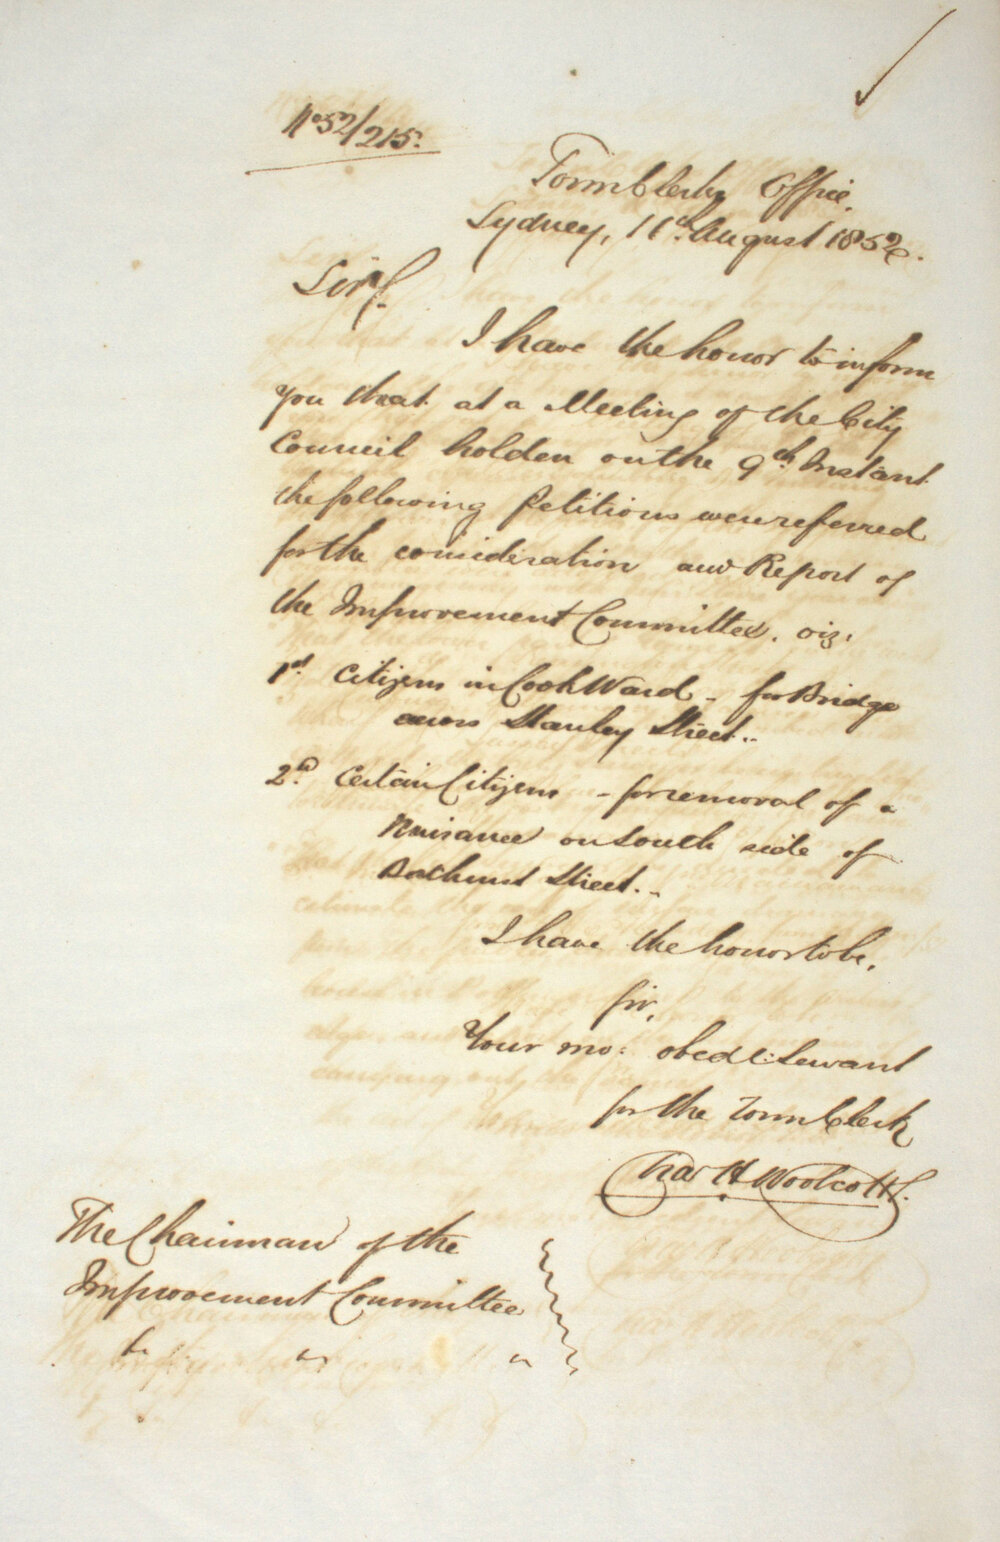 No 52/215.
Town Clerks Office,
Sydney, 11th August 1852.
Sir,
I have the honor to inform
you that at a Meeting of the City
Council holden on the 9th Instant
the following Petitions were referred
for the consideration and Report of
the Improvement Committee. viz:
1st Citizens in Cook Ward - for Bridge
across Stanley Street..
2d Certain Citizens - for removal of a
Nuisance on South side of
Bathurst Street..
I have the honor to be,
Sir,
Your mo: obedt: Servant
for the Town Clerk
Chas H Woolcott
The Chairman of the
Improvement Committee